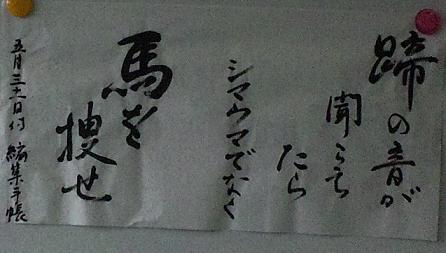 蹄の音が
聞こえ
たら
シマウマでなく
馬を
捜せ
五月三十一日付 編集手帳